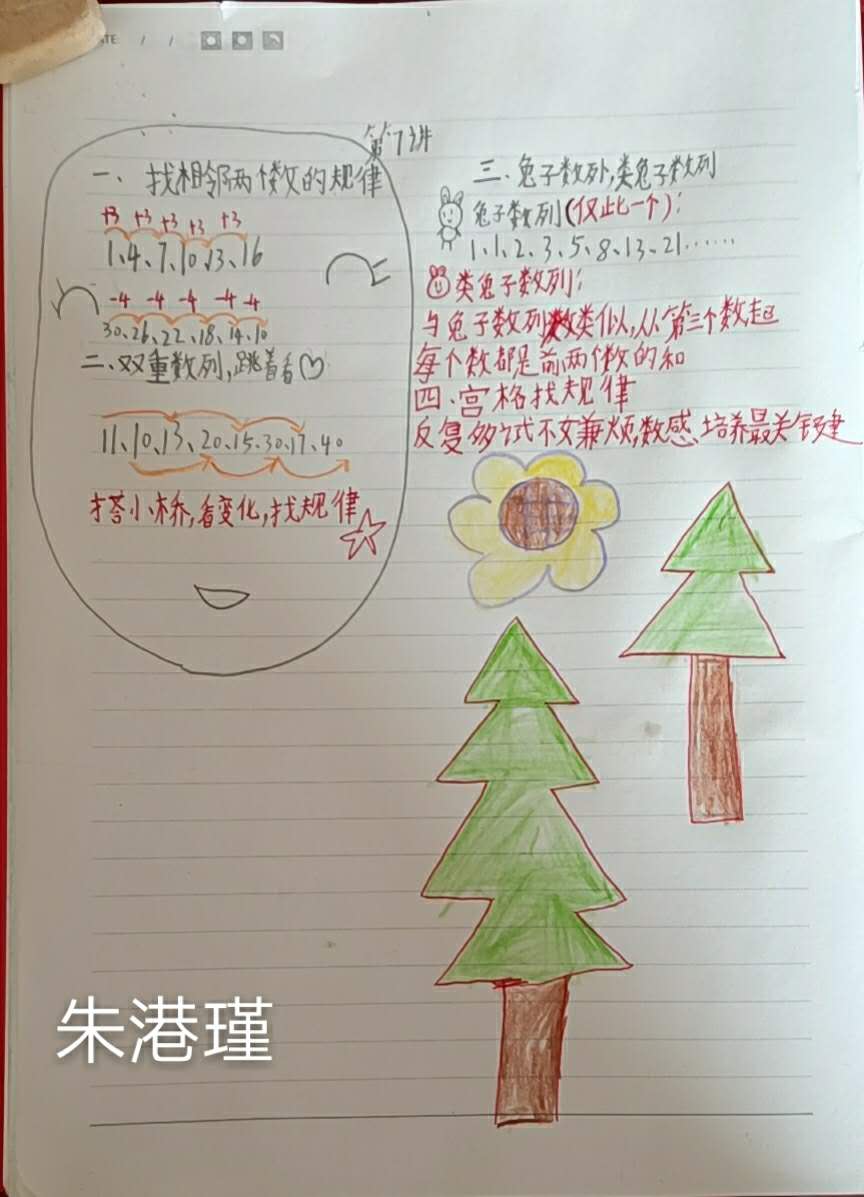 ATE / /
第17讲
一、找相邻两个数的规律
+3 +3 +3 +3 +3
1、4、7、10、13、16
-4 -4 -4 -4 -4
30、26、22、18、14、10
二、双重数列,跳着看
11、10、13、20、15、30、17、40
搭小桥,看变化,找规律
三、兔子数列,类兔子数列
兔子数列(仅此一个):
1、1、2、3、5、8、13、21……
类兔子数列:
与兔子数列类似,从第三个数起
每个数都是前两个数的和
四、宫格找规律
反复多试不嫌烦,数感培养最关键
朱港瑾